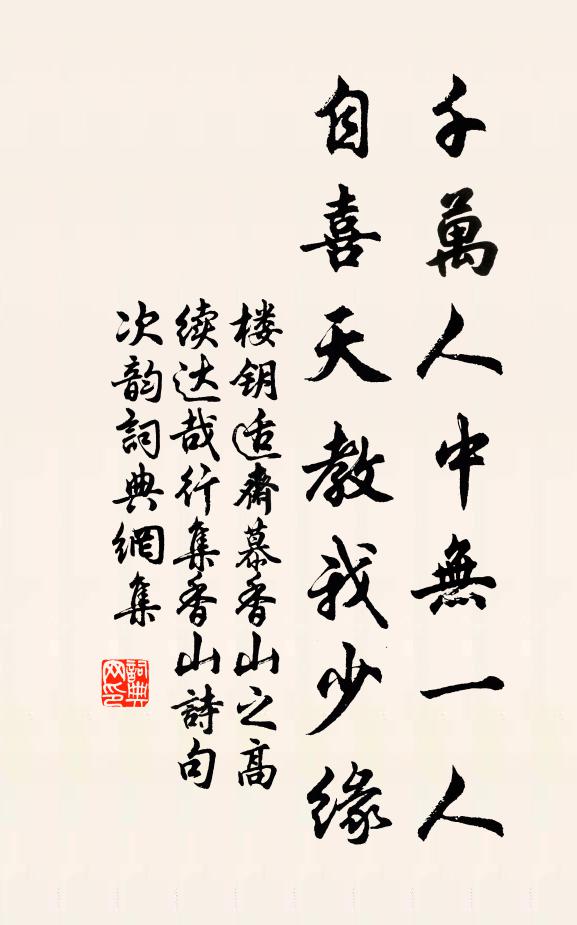 千萬人中無一人
自喜天教我少緣
楼钥适齋慕香山之高
续达哉行集香山詩句
次韵詞典網集
詞典网印